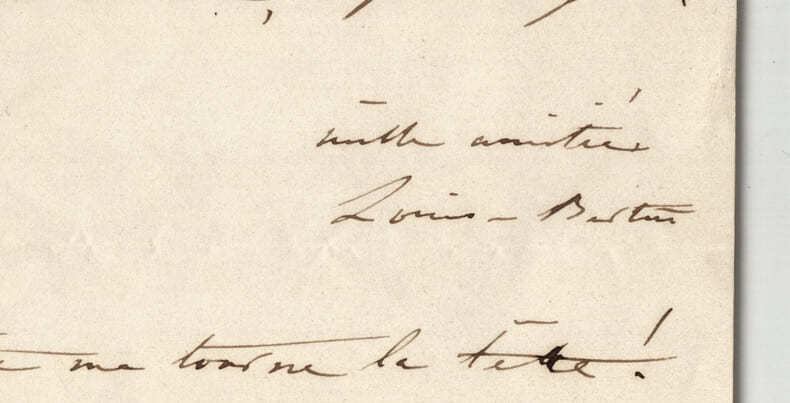 mille amitiés
Louis - Bertin
me tourne la tête !